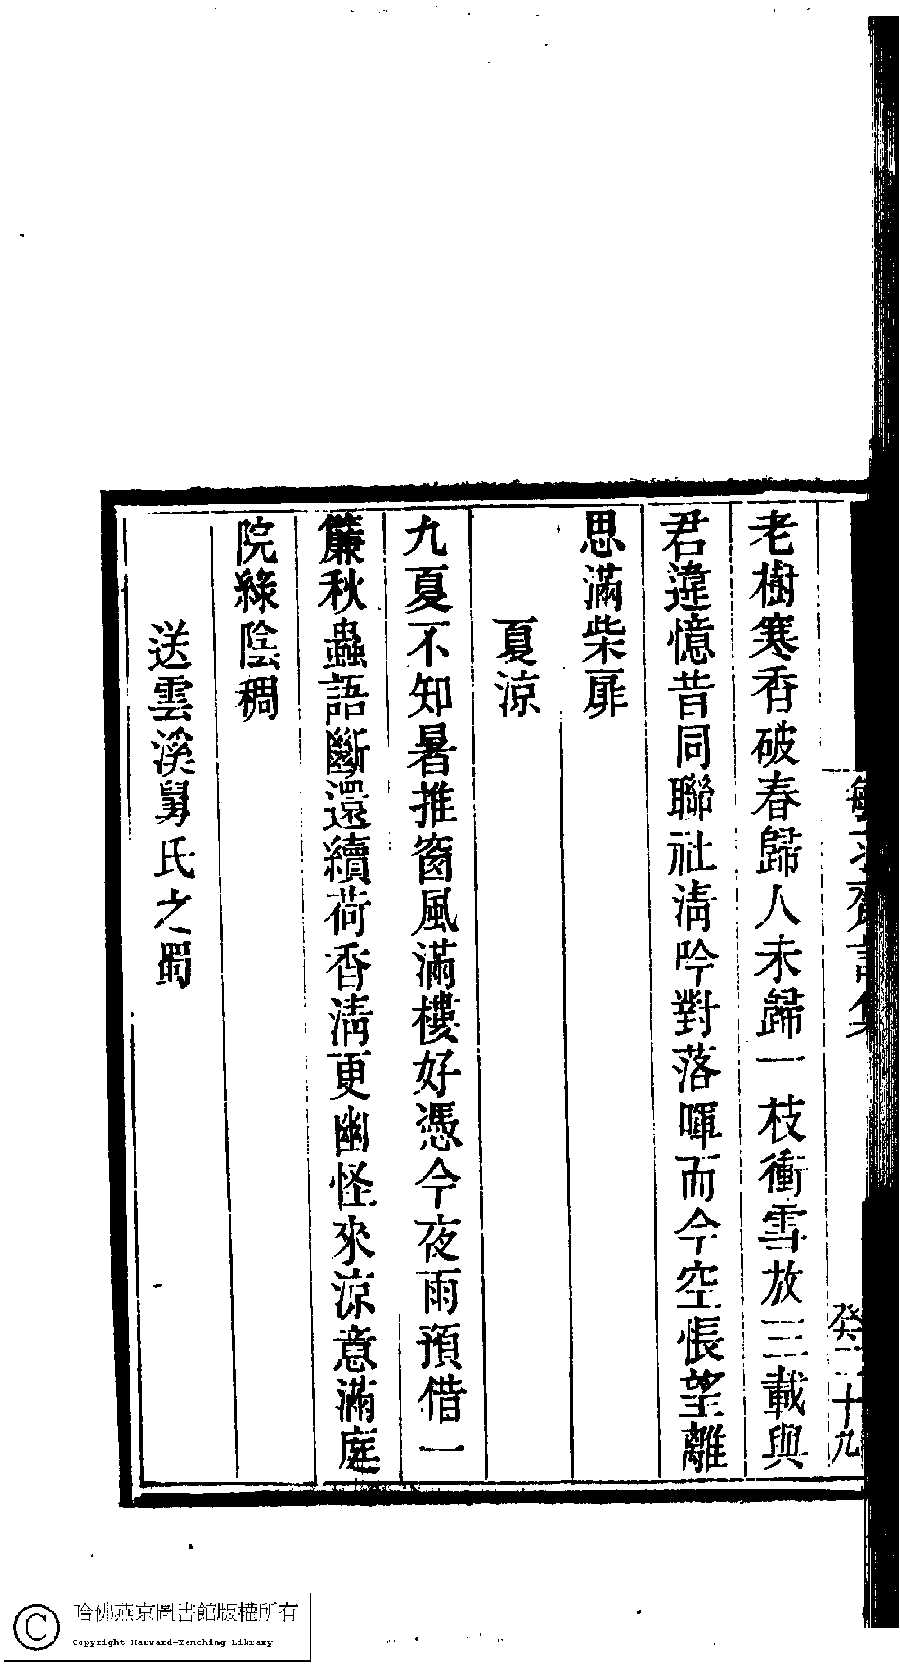 老樹寒香破春歸人未歸一枝衝雪放三載與
君違憶昔同聯社清吟對落暉而今空悵望離
思滿柴扉
夏涼
九夏不知暑推窗風滿樓好憑今夜雨預借一
簾秋蟲語斷還續荷香清更幽怪來涼意滿庭
院綠陰稠
送雲溪舅氏之蜀
癸 十九
哈佛燕京圖書館版權所有
Copyright Harvard-Yenching Library